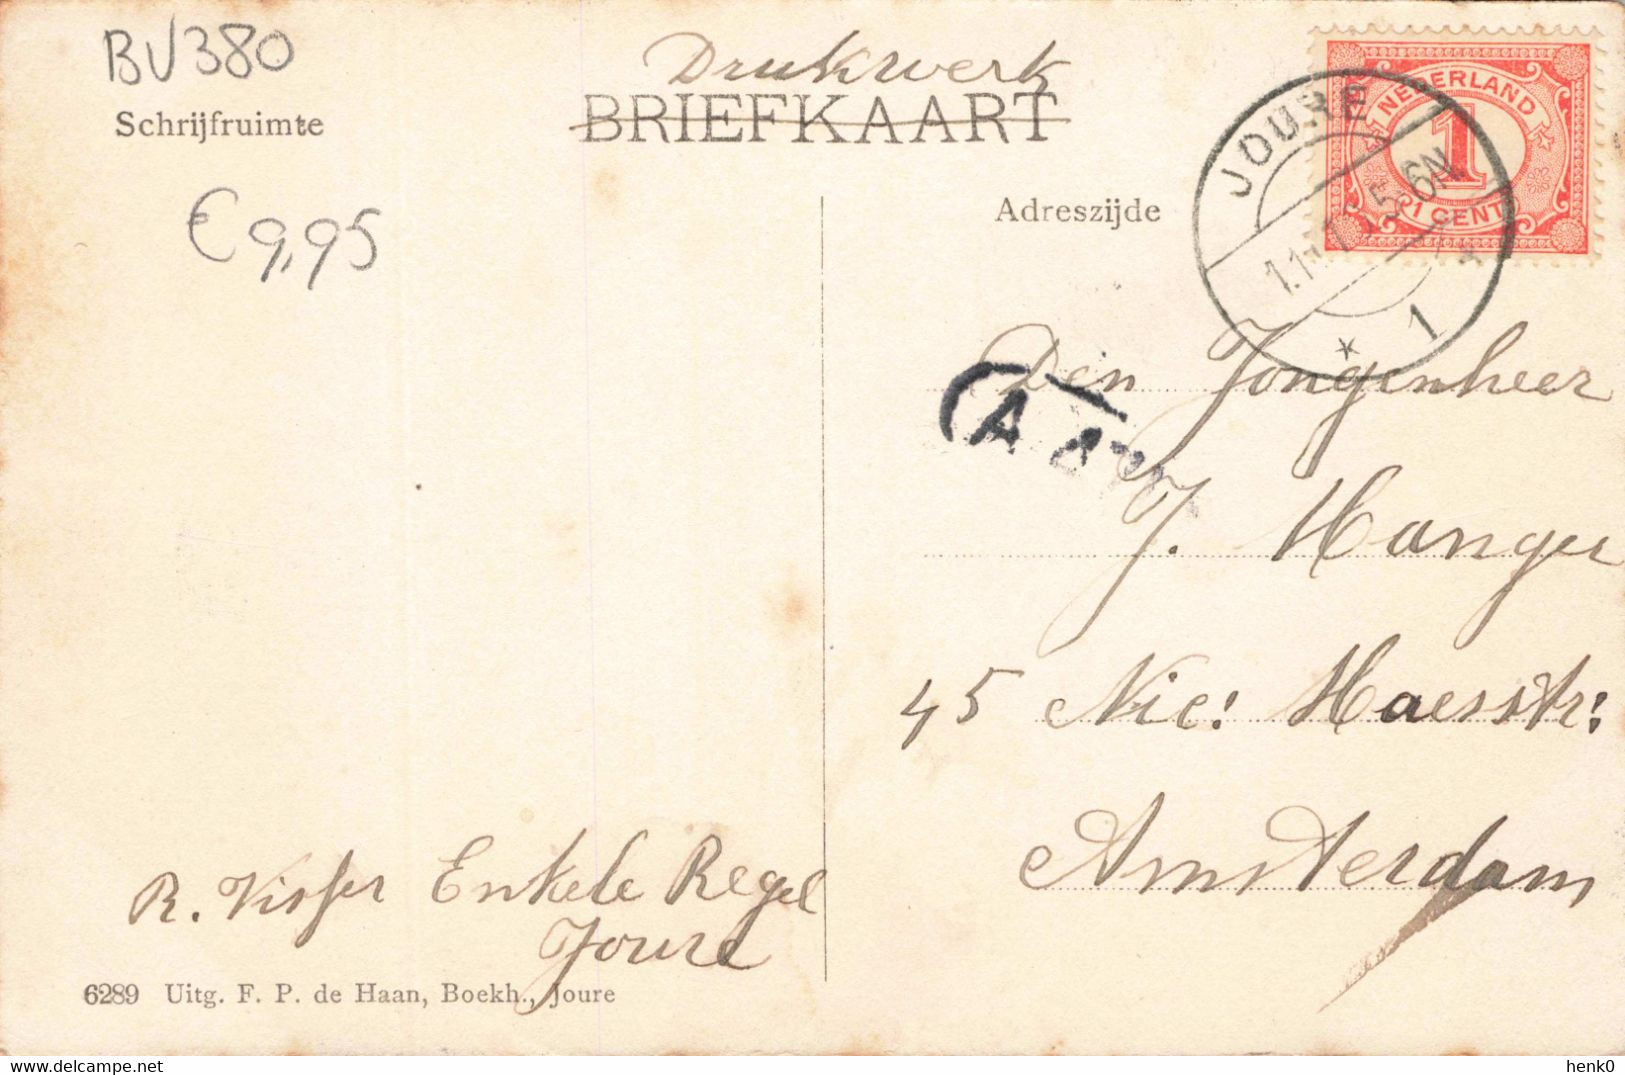 BV380
Drukwerk
BRIEFKAART
Schrijfruimte
Adreszijde
€ 9,95
NEDERLAND
1
1 CENT
JOURE
6N
* 1
Den Jongenheer
J. Hanger
45 Nic: Maesstr:
Amsterdam
R. Visser Enkele Regel
Joure
6289 Uitg. F. P. de Haan, Boekh., Joure
henk0